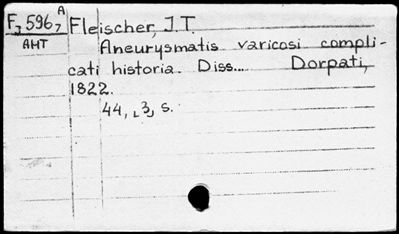 F, 596, A Fleischer, J.T.
AHT Aneurysmatis varicosi compli-
cati historia. Diss... Dorpati,
1822.
44, [3] s.